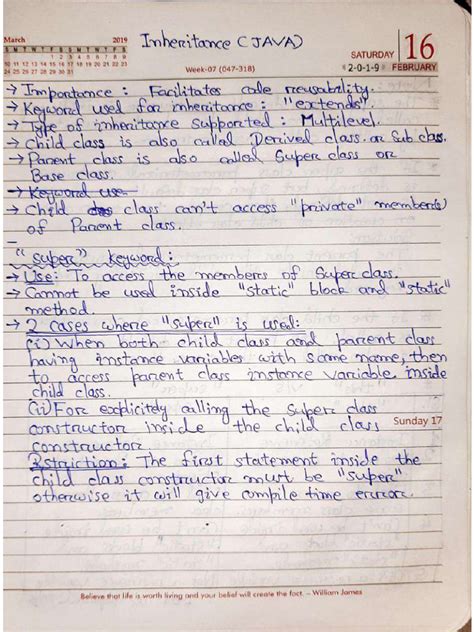 March 2019
S M T W T F S M T W T F S
Inheritance (JAVA)
Week-07 (047-318)
SATURDAY 16
2-0-1-9 FEBRUARY
→ Importance : Facilitates code reusability.
→ Keyword used for inheritance : "extends"
→ Type of inheritance supported : Multilevel.
→ Child class is also called Derived class or Sub class.
→ Parent class is also called Super class or
Base class.
→ Keyword use
→ Child class can't access "private" members
of Parent class.
"super" keyword:
→ Use: To access the members of Super class.
→ Cannot be used inside "static" block and "static"
method.
→ 2 cases where "super" is used:
(i) When both child class and parent class
having instance variables with same name, then
to access parent class instance variable inside
child class.
(ii) For explicitly calling the Super class
constructor inside the child class
Sunday 17
constructor.
Restriction : The first statement inside the
child class constructor must be "super"
otherwise it will give compile time error.
Believe that life is worth living and your belief will create the fact. – William James